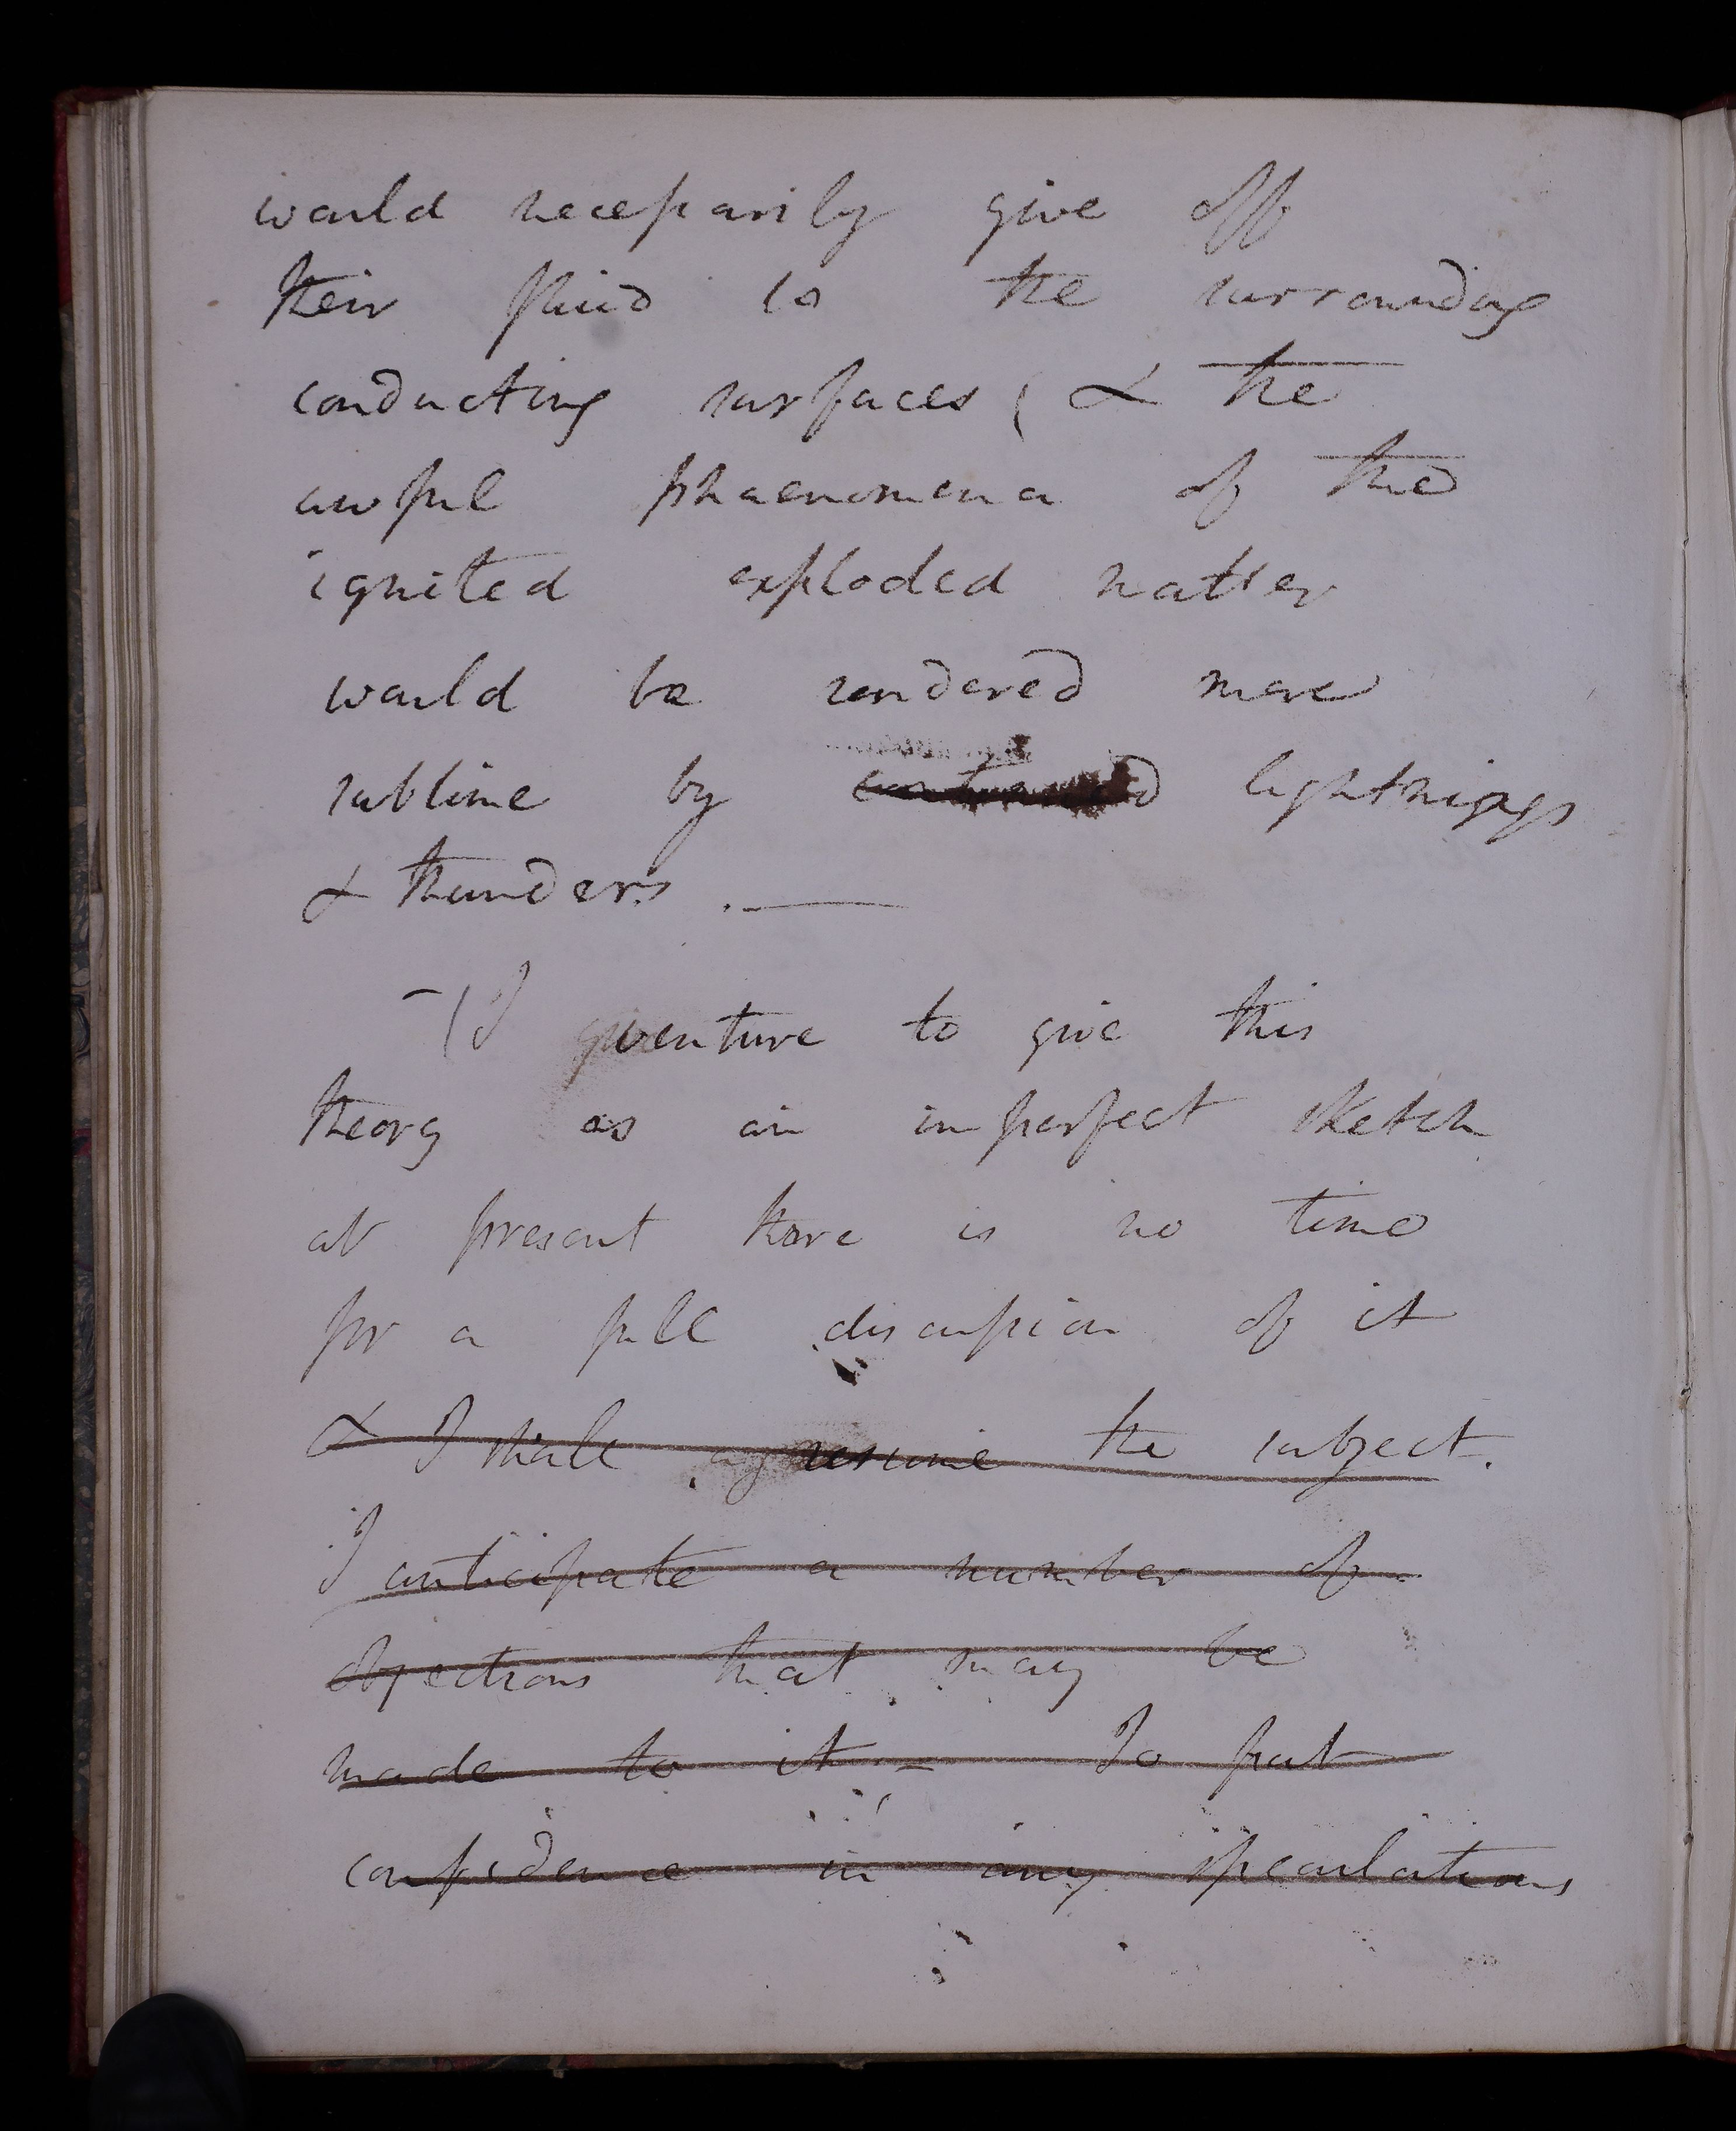 would necessarily give off
their fluid to the surrounding
conducting surfaces ( & the
awful phaenomena of the
ignited exploded matter
would be rendered more
sublime by continued lightnings
& thunders. —
-(I venture to give this
theory as an imperfect sketch
at present there is no time
for a full discussion of it
& I shall resume the subject.
I anticipate a number of
objections that may be
made to it - To put
confidence in any speculations